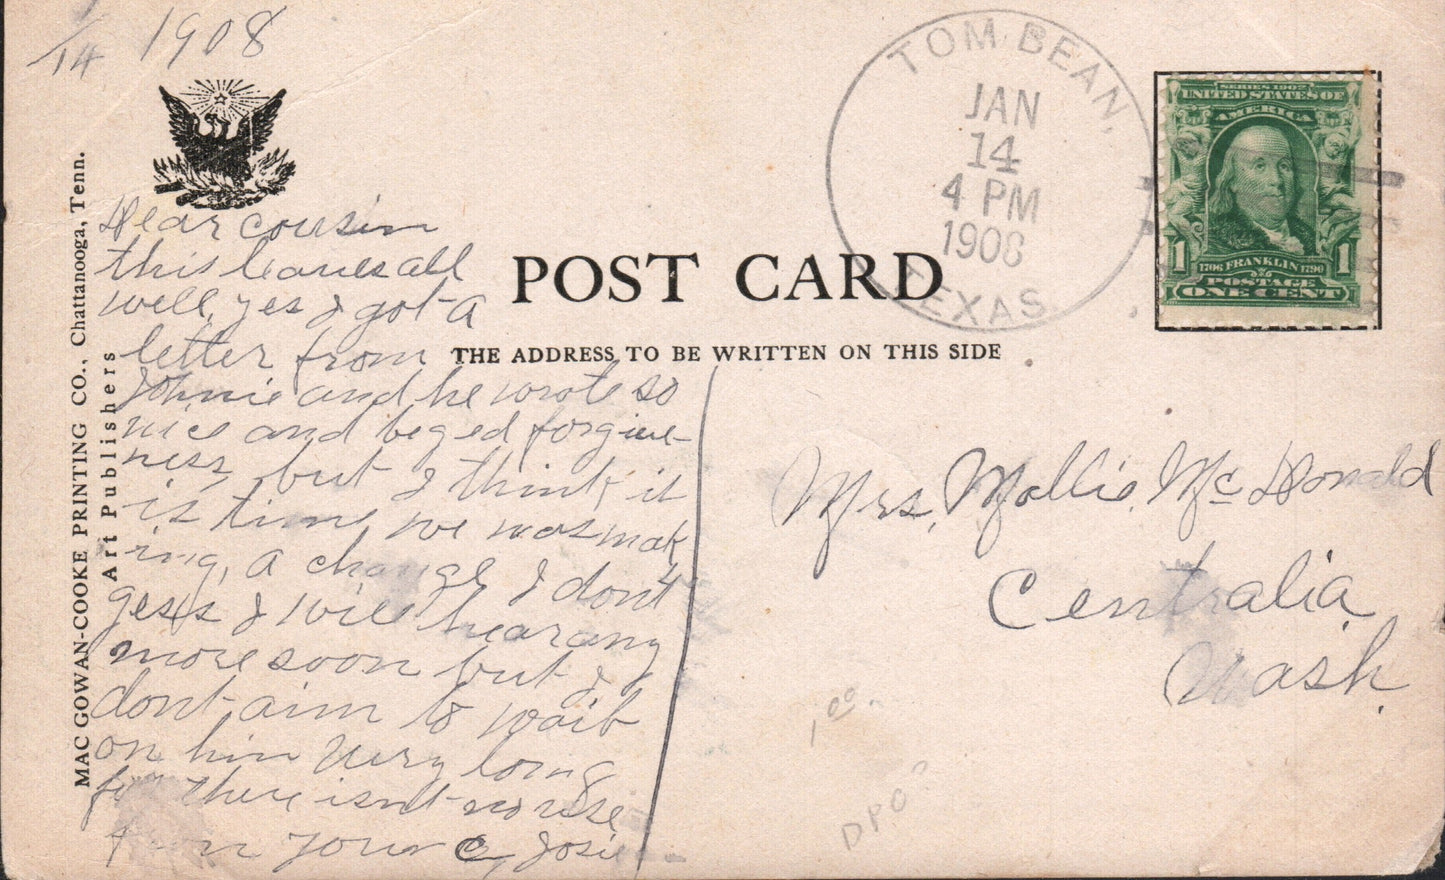 1/14 1908
TOM BEAN,
JAN
14
4 PM
1908
TEXAS.
SERIES 1902
UNITED STATES OF
AMERICA
1 1
1706 FRANKLIN 1790
POSTAGE
ONE CENT
POST CARD
THE ADDRESS TO BE WRITTEN ON THIS SIDE
MAC GOWAN-COOKE PRINTING CO., Chattanooga, Tenn.
Art Publishers
Dear cousin
this leaves all
well, yes I got a
letter from
Johnie and he wrote so
nice and beged forgive-
ness, but I think it
is time we was mak
ing, a change I dont
gess I will hear any
more soon but I
dont aim to wait
on him very long
for there isnt no use
from your C, Josie
Mrs, Mollie, McDonald
Centralia,
Wash.
1.00
DPO?